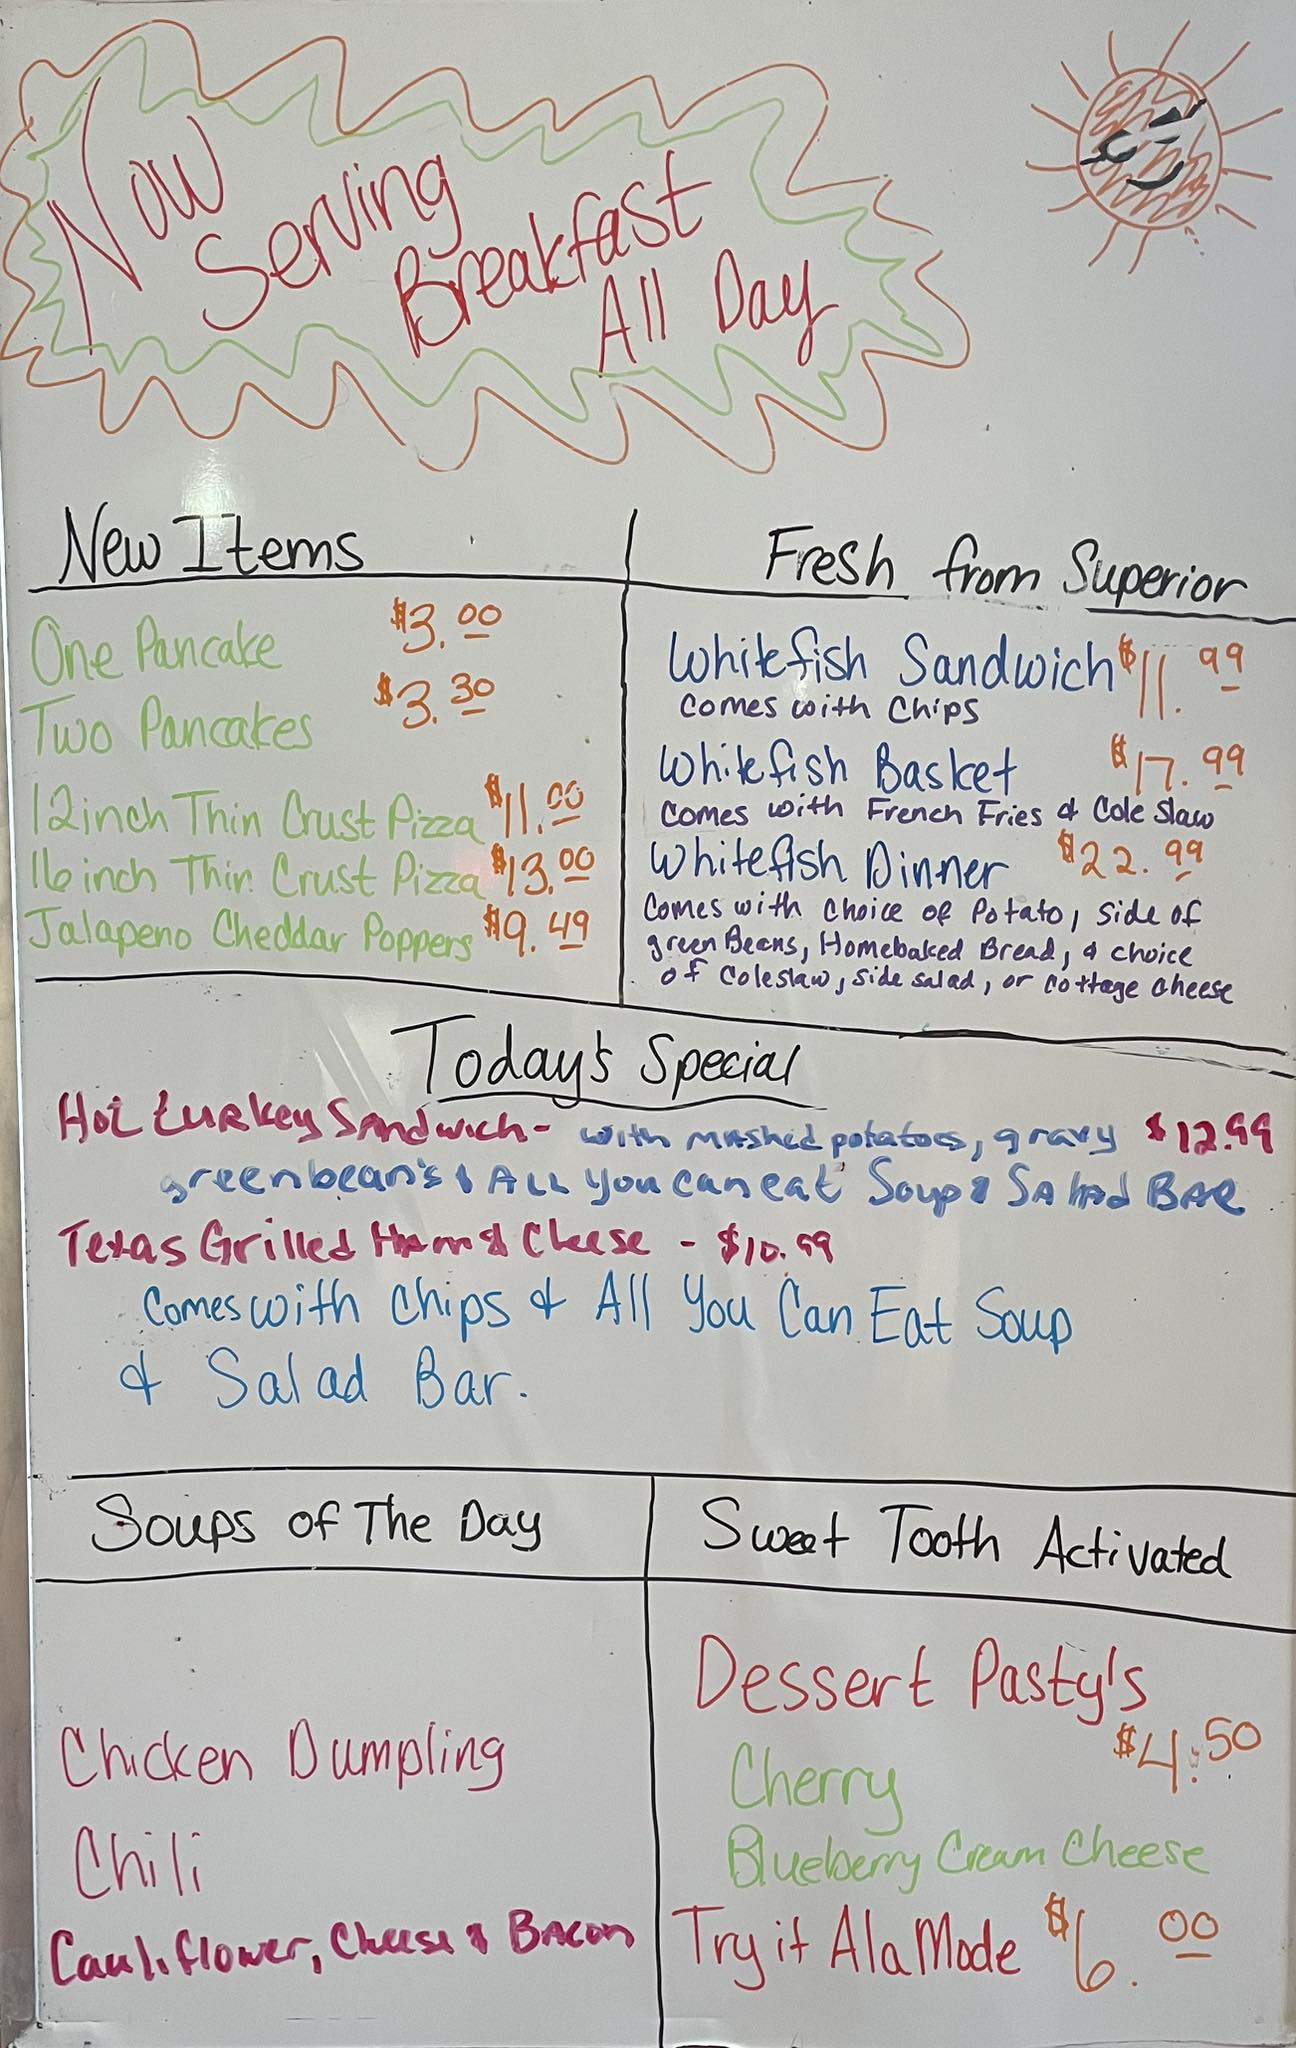 Now
Serving
Breakfast
All Day
New Items
One Pancake $3.00
Two Pancakes $3.30
12 inch Thin Crust Pizza $11.00
16 inch Thin Crust Pizza $13.00
Jalapeno Cheddar Poppers $9.49
Fresh from Superior
Whitefish Sandwich $11.99
Comes with Chips
Whitefish Basket $17.99
Comes with French Fries & Cole Slaw
Whitefish Dinner $22.99
Comes with choice of Potato, side of
green Beans, Homebaked Bread, & choice
of Coleslaw, side salad, or cottage cheese
Today's Special
Hot turkey Sandwich - with mashed potatoes, gravy $12.99
greenbean's & All You can eat Soup & Salad BAR
Texas Grilled Ham & Cheese - $10.99
Comes with Chips & All You Can Eat Soup
& Salad Bar.
Soups of The Day
Chicken Dumpling
Chili
Cauliflower, Cheese & Bacon
Sweet Tooth Activated
Dessert Pasty's
$4.50
Cherry
Blueberry Cream Cheese
Try it Ala Mode $6.00